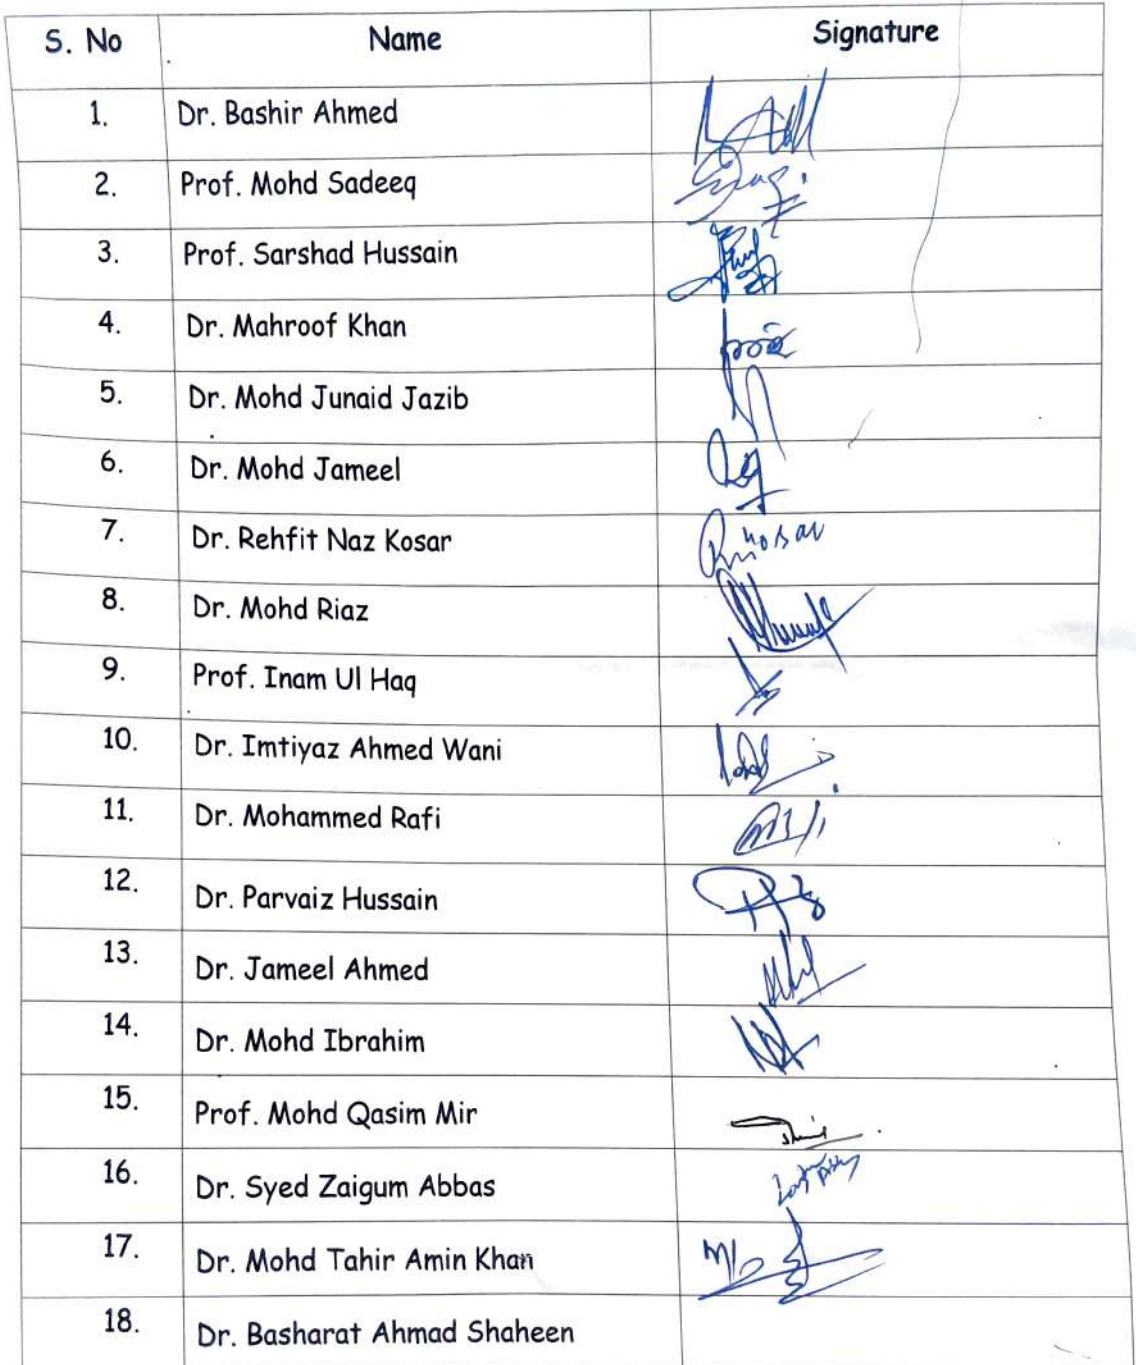 S. No Name Signature
1. Dr. Bashir Ahmed
2. Prof. Mohd Sadeeq
3. Prof. Sarshad Hussain
4. Dr. Mahroof Khan
5. Dr. Mohd Junaid Jazib
6. Dr. Mohd Jameel
7. Dr. Rehfit Naz Kosar
8. Dr. Mohd Riaz
9. Prof. Inam Ul Haq
10. Dr. Imtiyaz Ahmed Wani
11. Dr. Mohammed Rafi
12. Dr. Parvaiz Hussain
13. Dr. Jameel Ahmed
14. Dr. Mohd Ibrahim
15. Prof. Mohd Qasim Mir
16. Dr. Syed Zaigum Abbas
17. Dr. Mohd Tahir Amin Khan
18. Dr. Basharat Ahmad Shaheen